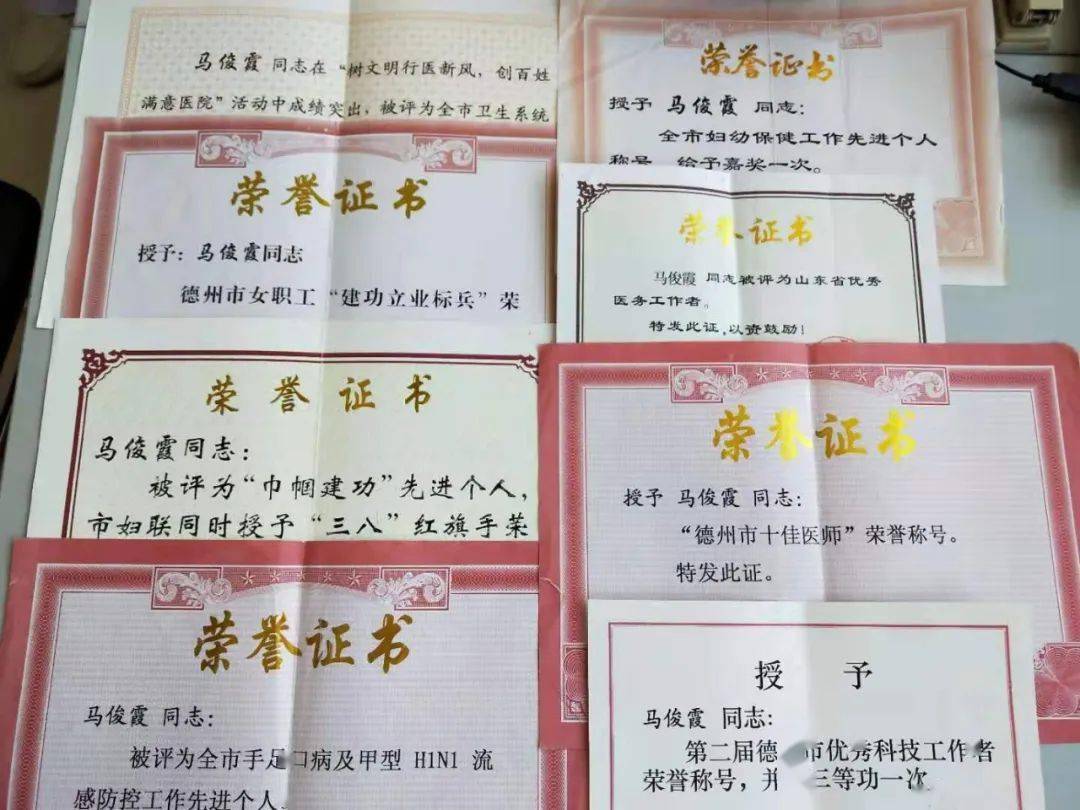 马俊霞 同志在“树文明行医新风，创百姓
满意医院”活动中成绩突出，被评为全市卫生系统
荣誉证书
授予 马俊霞 同志：
全市妇幼保健工作先进个人
称号，给予嘉奖一次。
荣誉证书
授予：马俊霞同志
德州市女职工“建功立业标兵”荣
荣誉证书
马俊霞 同志被评为山东省优秀
医务工作者。
特发此证，以资鼓励！
荣誉证书
马俊霞同志：
被评为“巾帼建功”先进个人，
市妇联同时授予“三八”红旗手荣
荣誉证书
授予 马俊霞 同志：
“德州市十佳医师”荣誉称号。
特发此证。
荣誉证书
马俊霞 同志：
被评为全市手足口病及甲型 H1N1 流
感防控工作先进个人
授 予
马俊霞 同志：
第二届德 市优秀科技工作者
荣誉称号，并 三等功一次